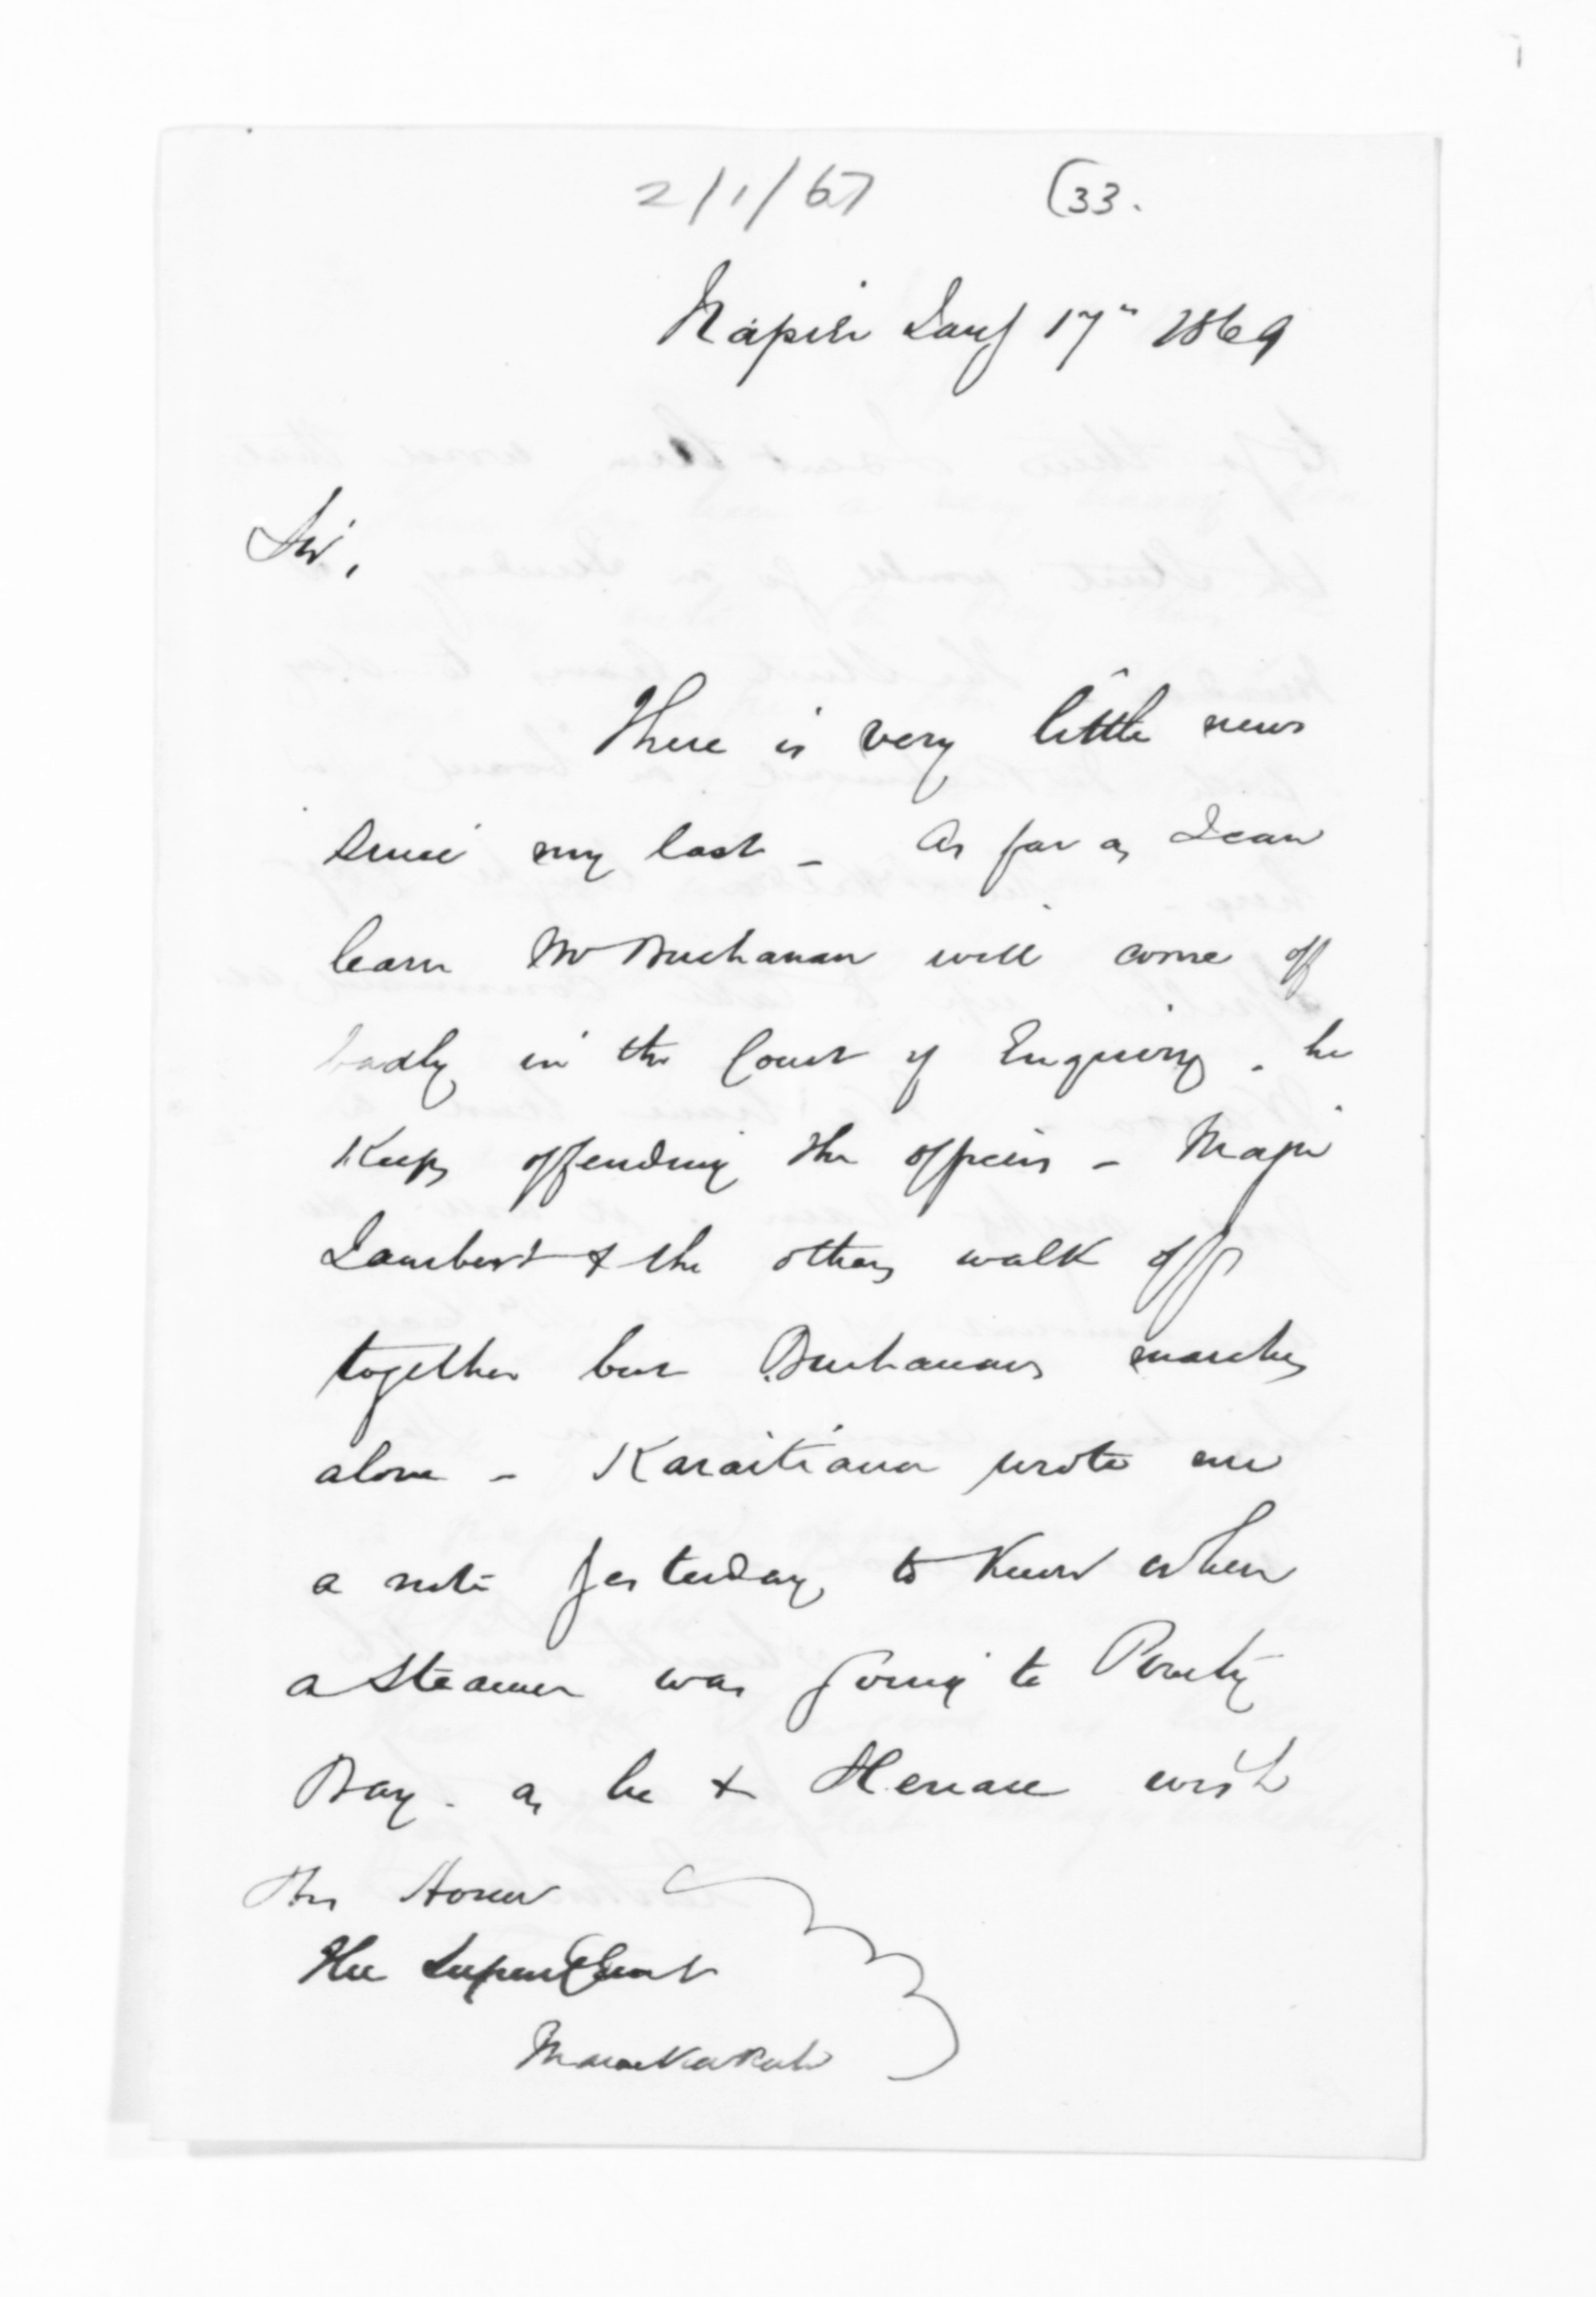 2/1/67 (33.
Napier Jany 17th 1869
Sir,
There is very little news
since my last _ As far as I can
learn Mr Buchanan will come off
badly in the Court of Enquiry - he
keeps offending the officers - Major
Lambert & the others walk off
together but Buchanan marches
alone - Karaitiana wrote me
a note yesterday to know when
a Steamer was going to Poverty
Bay - as he & Henare wish
His Honor
The Superintendent